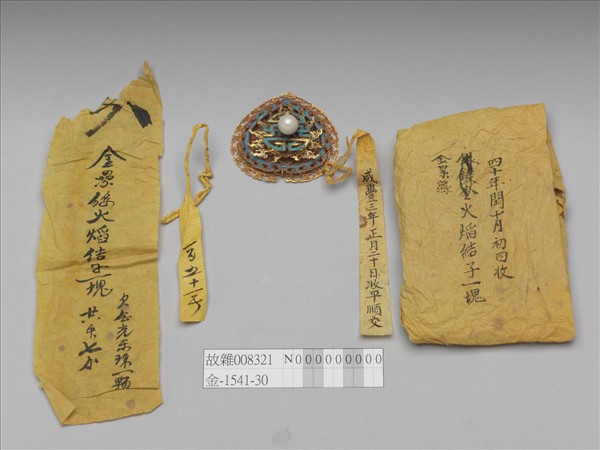 四十年閏十月初四收
火焰結子一塊
金累絲
咸豐三年正月二十日收平順交
百五十一号
八
金累絲火焰結子一塊
東珠一顆
共重七分
故雜008321 N000000000
金-1541-30